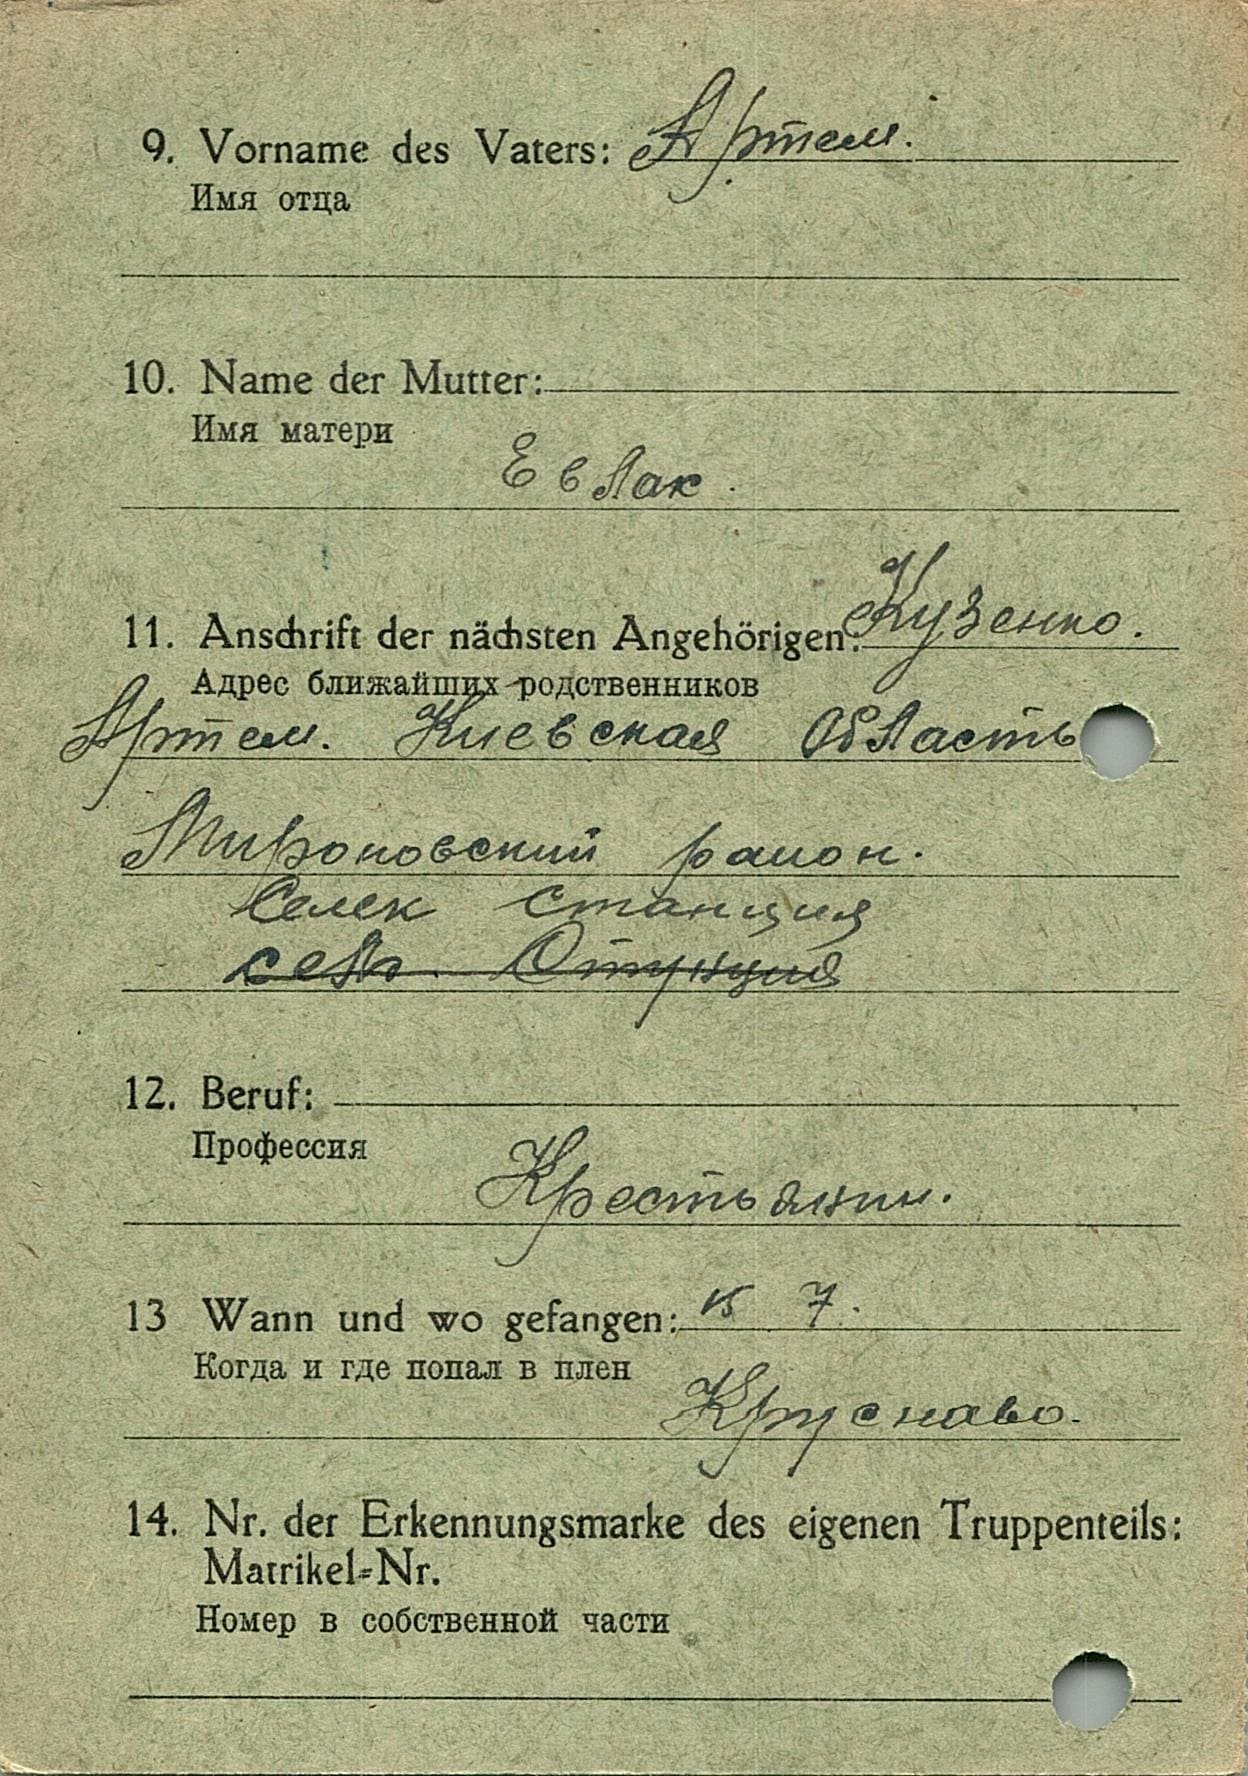 9. Vorname des Vaters: Артем.
Имя отца
10. Name der Mutter:
Имя матери
Евлак.
11. Anschrift der nächsten Angehörigen: Кузенко.
Адрес ближайших родственников
Артем. Киевская Область
Мироновский район.
Селек станция
сель.
12. Beruf:
Профессия
Крестьянин.
13 Wann und wo gefangen: 15 7.
Когда и где попал в плен
Круснаво.
14. Nr. der Erkennungsmarke des eigenen Truppenteils:
Matrikel=Nr.
Номер в собственной части